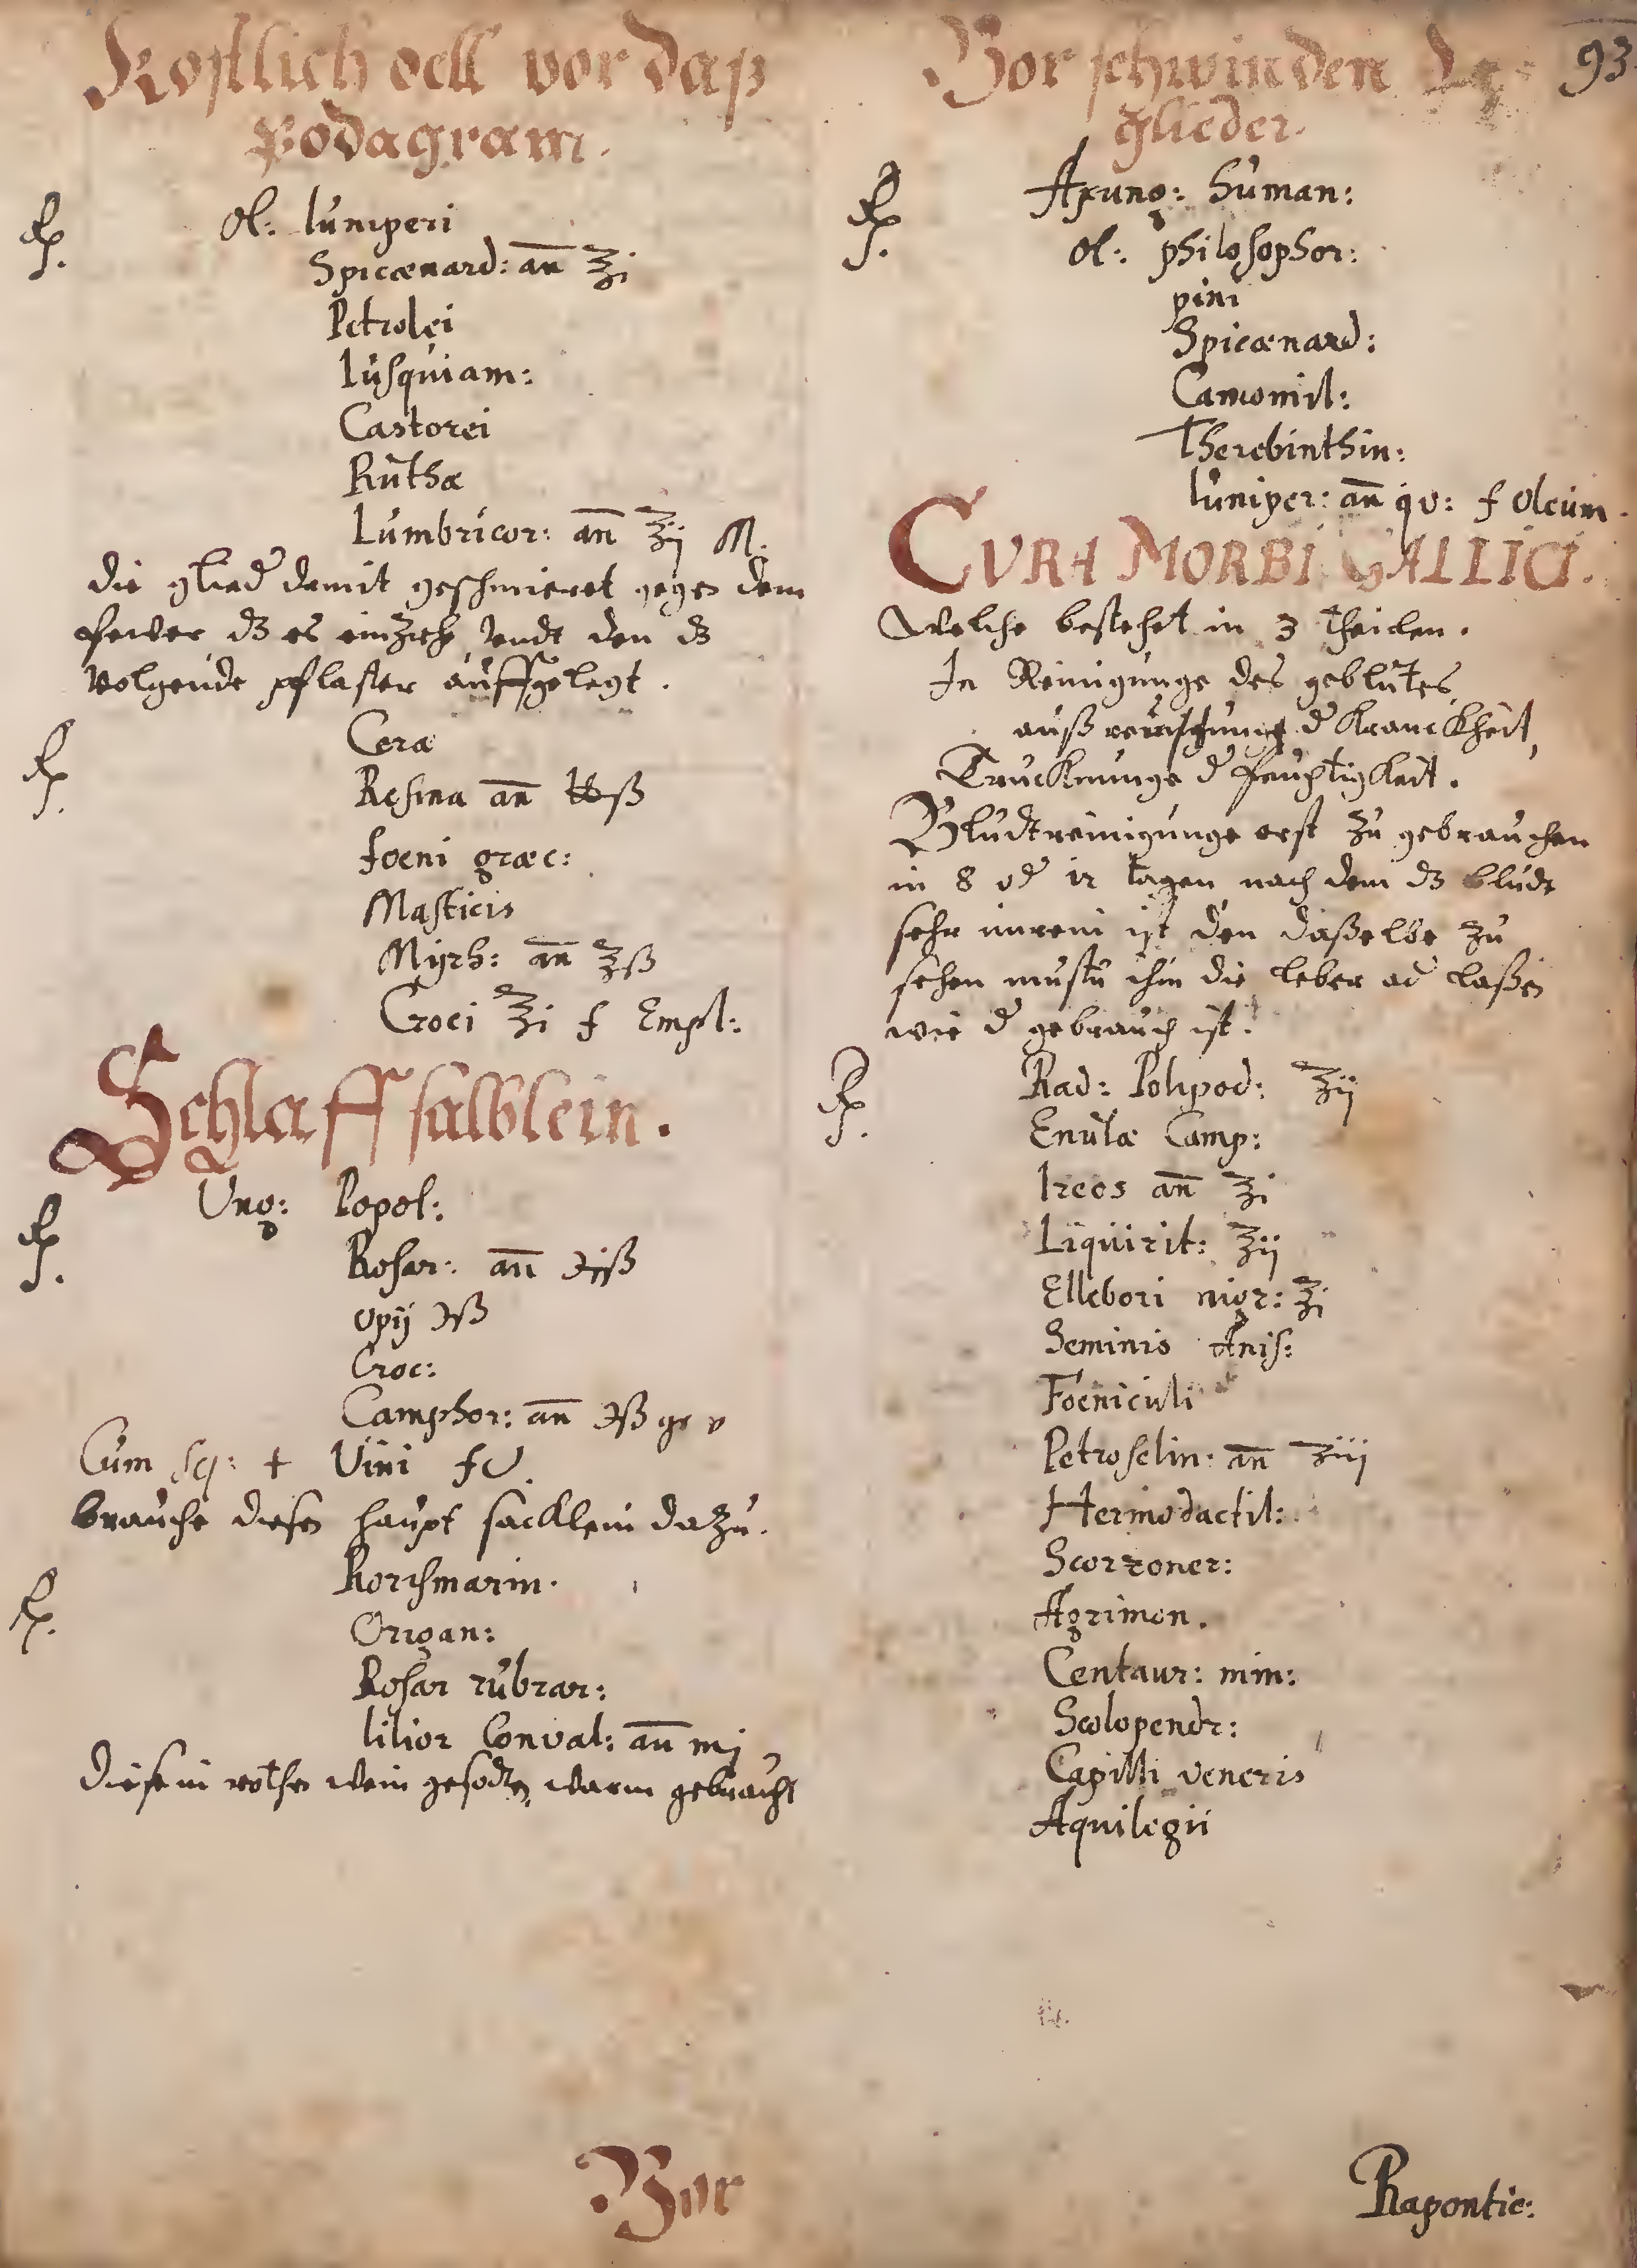 Kostlich oell vor daß
Podagram.
℞. Ol: Iuniperi
Spicænard: an̄ ʒi
Petrolei
Iusquiam:
Castorei
Ruthæ
Lumbricor: an̄ ʒij M.
die glied damit geschmieret gegen dem
fewer dz es einzieh, undt den dz
volgende pflaster auffgelegt.
℞. Ceræ
Resina an̄ ℔ß
foeni græc:
Masticis
Myrh: an̄ ʒß
Croci ʒi f Empl:
Schlaff salblein.
℞. Ung: Popol:
Rosar: an̄ ℈jß
opij ℈ß
Croc:
Camphor: an̄ ℈ß gr v
Cum sq: + Vini fU.
brauche diesen haupt sacklein dazu.
℞. Rorismarin.
Origan:
Rosar rubrar:
lilior Conval: an̄ mj
Diese in rothen wein gesodten, warm gebraucht
Vor
93
Vor schwinden der
Glieder.
℞. Axung: human:
Ol: philosophor:
pini
Spicænard:
Camomil:
Therebinthin:
Iuniper: an̄ qv: f Oleum.
CVRA MORBI GALLICI.
Welche bestehet in 3 theilen.
In Reinigunge des geblutes,
auß d Kranckheit,
Trucknunge d feuchtigkeit.
Bludtreinigunge erst zu gebrauchen
in 8 od 12 tagen nach dem dz bludt
sehr unrein ist den daßelbe zu
sehen mustu ihm die leber ad laßen
wie d gebrauch ist.
℞. Rad: Polipod: ʒij
Enulæ Camp:
Ireos an̄ ʒi
Liquirit: ʒij
Ellebori nigr: ʒi
Seminis Anis:
Foeniculi
Petroselin: an̄ ʒiij
Hermodactil:
Scorzoner:
Agrimon.
Centaur: min:
Scolopendr:
Capilli veneris
Aquilegii
Rapontic: